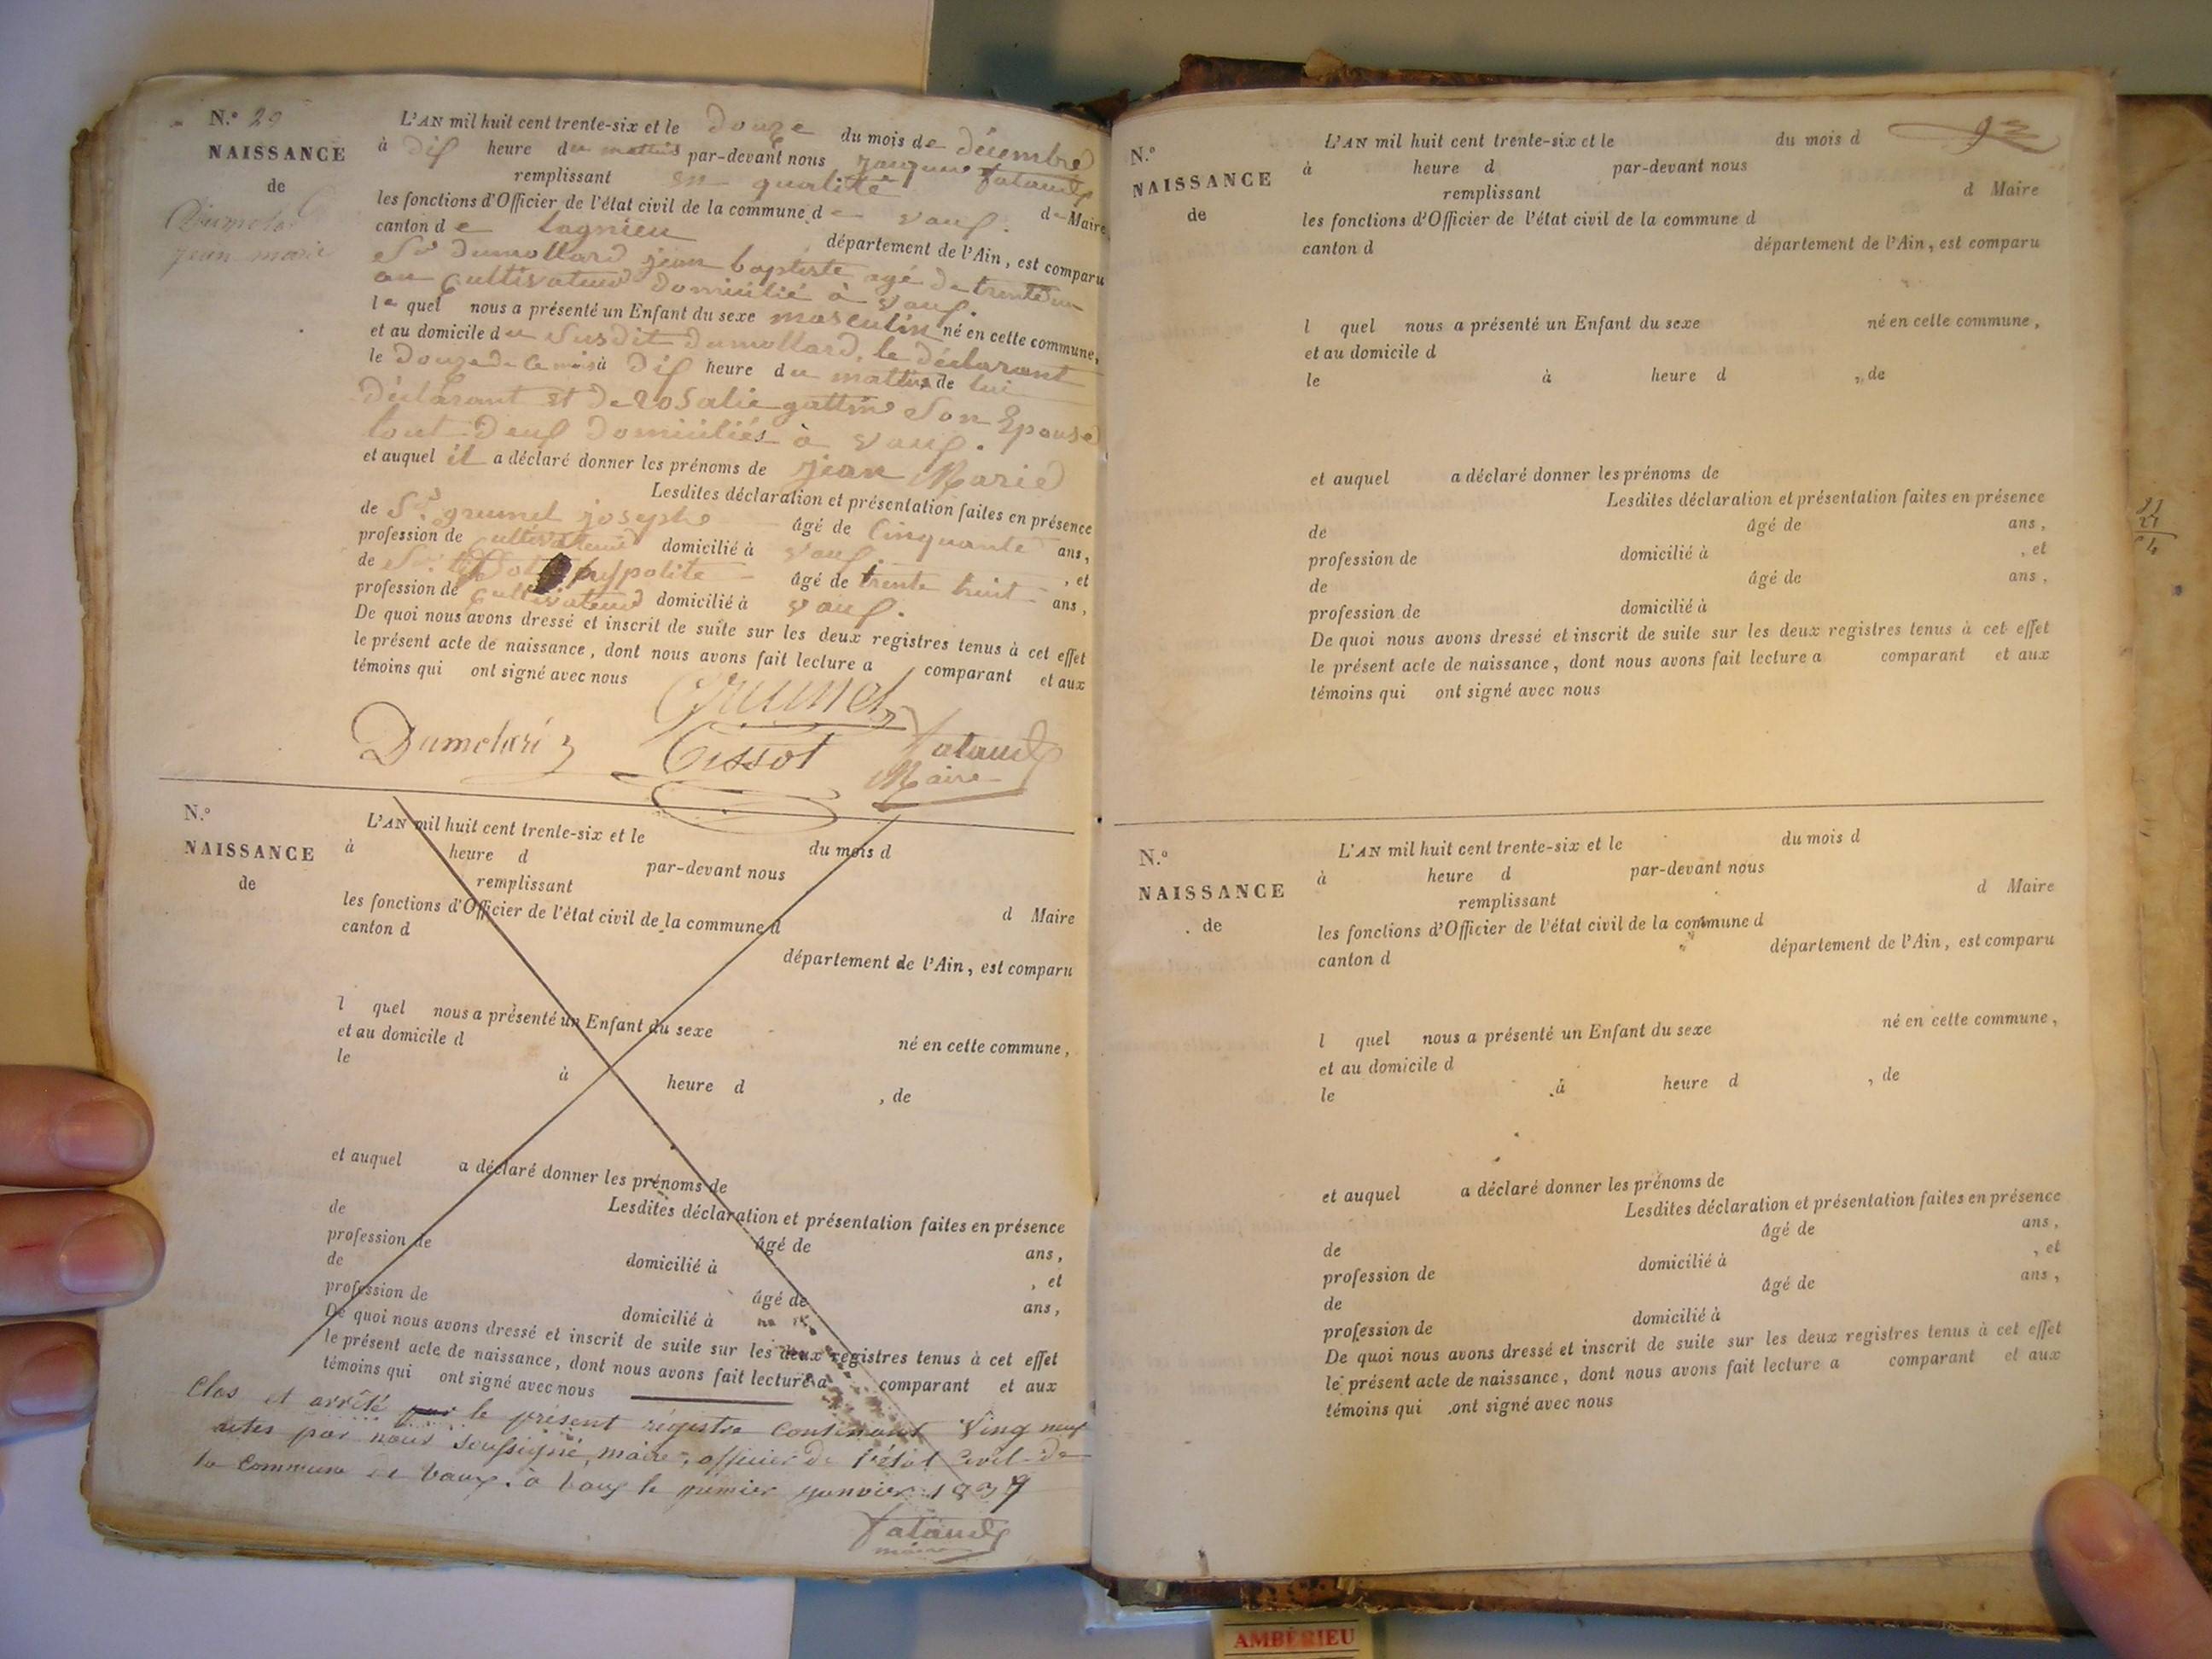 N.º 29
NAISSANCE
de
jean marie
L'AN mil huit cent trente-six et le douze du mois de décembre
à dix heure du mattin par-devant nous jacques
remplissant en qualité de Maire
les fonctions d'Officier de l'état civil de la commune de vaux.
canton de lagnieu département de l'Ain, est comparu
Sr dumollard jean baptiste agé de trente un
an cultivateur domicilié à vaux.
le quel nous a présenté un Enfant du sexe masculin né en cette commune,
et au domicile du susdit dumollard, le déclarant
le douze de ce mois à dix heure du mattin, de lui
déclarant et de rosalie gattin son Epouse
tout deux domiciliés à vaux.
et auquel il a déclaré donner les prénoms de jean Marie
Lesdites déclaration et présentation faites en présence
de Sr. grumet joseph âgé de Cinquante ans,
profession de cultivateur domicilié à vaux , et
de Sr. hypolite âgé de trente huit ans,
profession de cultivateur domicilié à vaux.
De quoi nous avons dressé et inscrit de suite sur les deux registres tenus à cet effet
le présent acte de naissance, dont nous avons fait lecture a comparant et aux
témoins qui ont signé avec nous
Grumet
Tissot
Maire
N.º
NAISSANCE
de
L'AN mil huit cent trente-six et le du mois d
à heure d par-devant nous
remplissant d Maire
les fonctions d'Officier de l'état civil de la commune d
canton d département de l'Ain, est comparu
l quel nous a présenté un Enfant du sexe né en cette commune,
et au domicile d
le à heure d , de
et auquel a déclaré donner les prénoms de
Lesdites déclaration et présentation faites en présence
de âgé de ans,
profession de domicilié à , et
de âgé de ans,
profession de domicilié à
De quoi nous avons dressé et inscrit de suite sur les deux registres tenus à cet effet
le présent acte de naissance, dont nous avons fait lecture a comparant et aux
témoins qui ont signé avec nous
Clos et arrêté par le présent régistre contenant Ving neuf
actes par nous soussigné, maire, officier de l'état Civil de
la Commune de Vaux. à Vaux le premier janvier 1837
maire
92
N.º
NAISSANCE
de
L'AN mil huit cent trente-six et le du mois d
à heure d par-devant nous
remplissant d Maire
les fonctions d'Officier de l'état civil de la commune d
canton d département de l'Ain, est comparu
l quel nous a présenté un Enfant du sexe né en cette commune,
et au domicile d
le à heure d , de
et auquel a déclaré donner les prénoms de
Lesdites déclaration et présentation faites en présence
de âgé de ans,
profession de domicilié à , et
de âgé de ans,
profession de domicilié à
De quoi nous avons dressé et inscrit de suite sur les deux registres tenus à cet effet
le présent acte de naissance, dont nous avons fait lecture a comparant et aux
témoins qui ont signé avec nous
N.º
NAISSANCE
de
L'AN mil huit cent trente-six et le du mois d
à heure d par-devant nous
remplissant d Maire
les fonctions d'Officier de l'état civil de la commune d
canton d département de l'Ain, est comparu
l quel nous a présenté un Enfant du sexe né en cette commune,
et au domicile d
le à heure d , de
et auquel a déclaré donner les prénoms de
Lesdites déclaration et présentation faites en présence
de âgé de ans,
profession de domicilié à , et
de âgé de ans,
profession de domicilié à
De quoi nous avons dressé et inscrit de suite sur les deux registres tenus à cet effet
le présent acte de naissance, dont nous avons fait lecture a comparant et aux
témoins qui ont signé avec nous
AMBÉRIEU